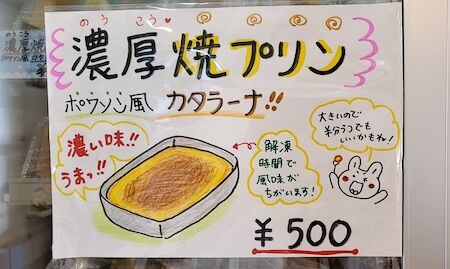 のうこう♥
濃厚焼プリン
ポワソン風 カタラーナ!!
濃い味!!
うまっ!!
解凍
時間で
風味が
ちがいます!
大きいので
半分うつでも
いいかもね!
¥500
のうこう
濃厚焼